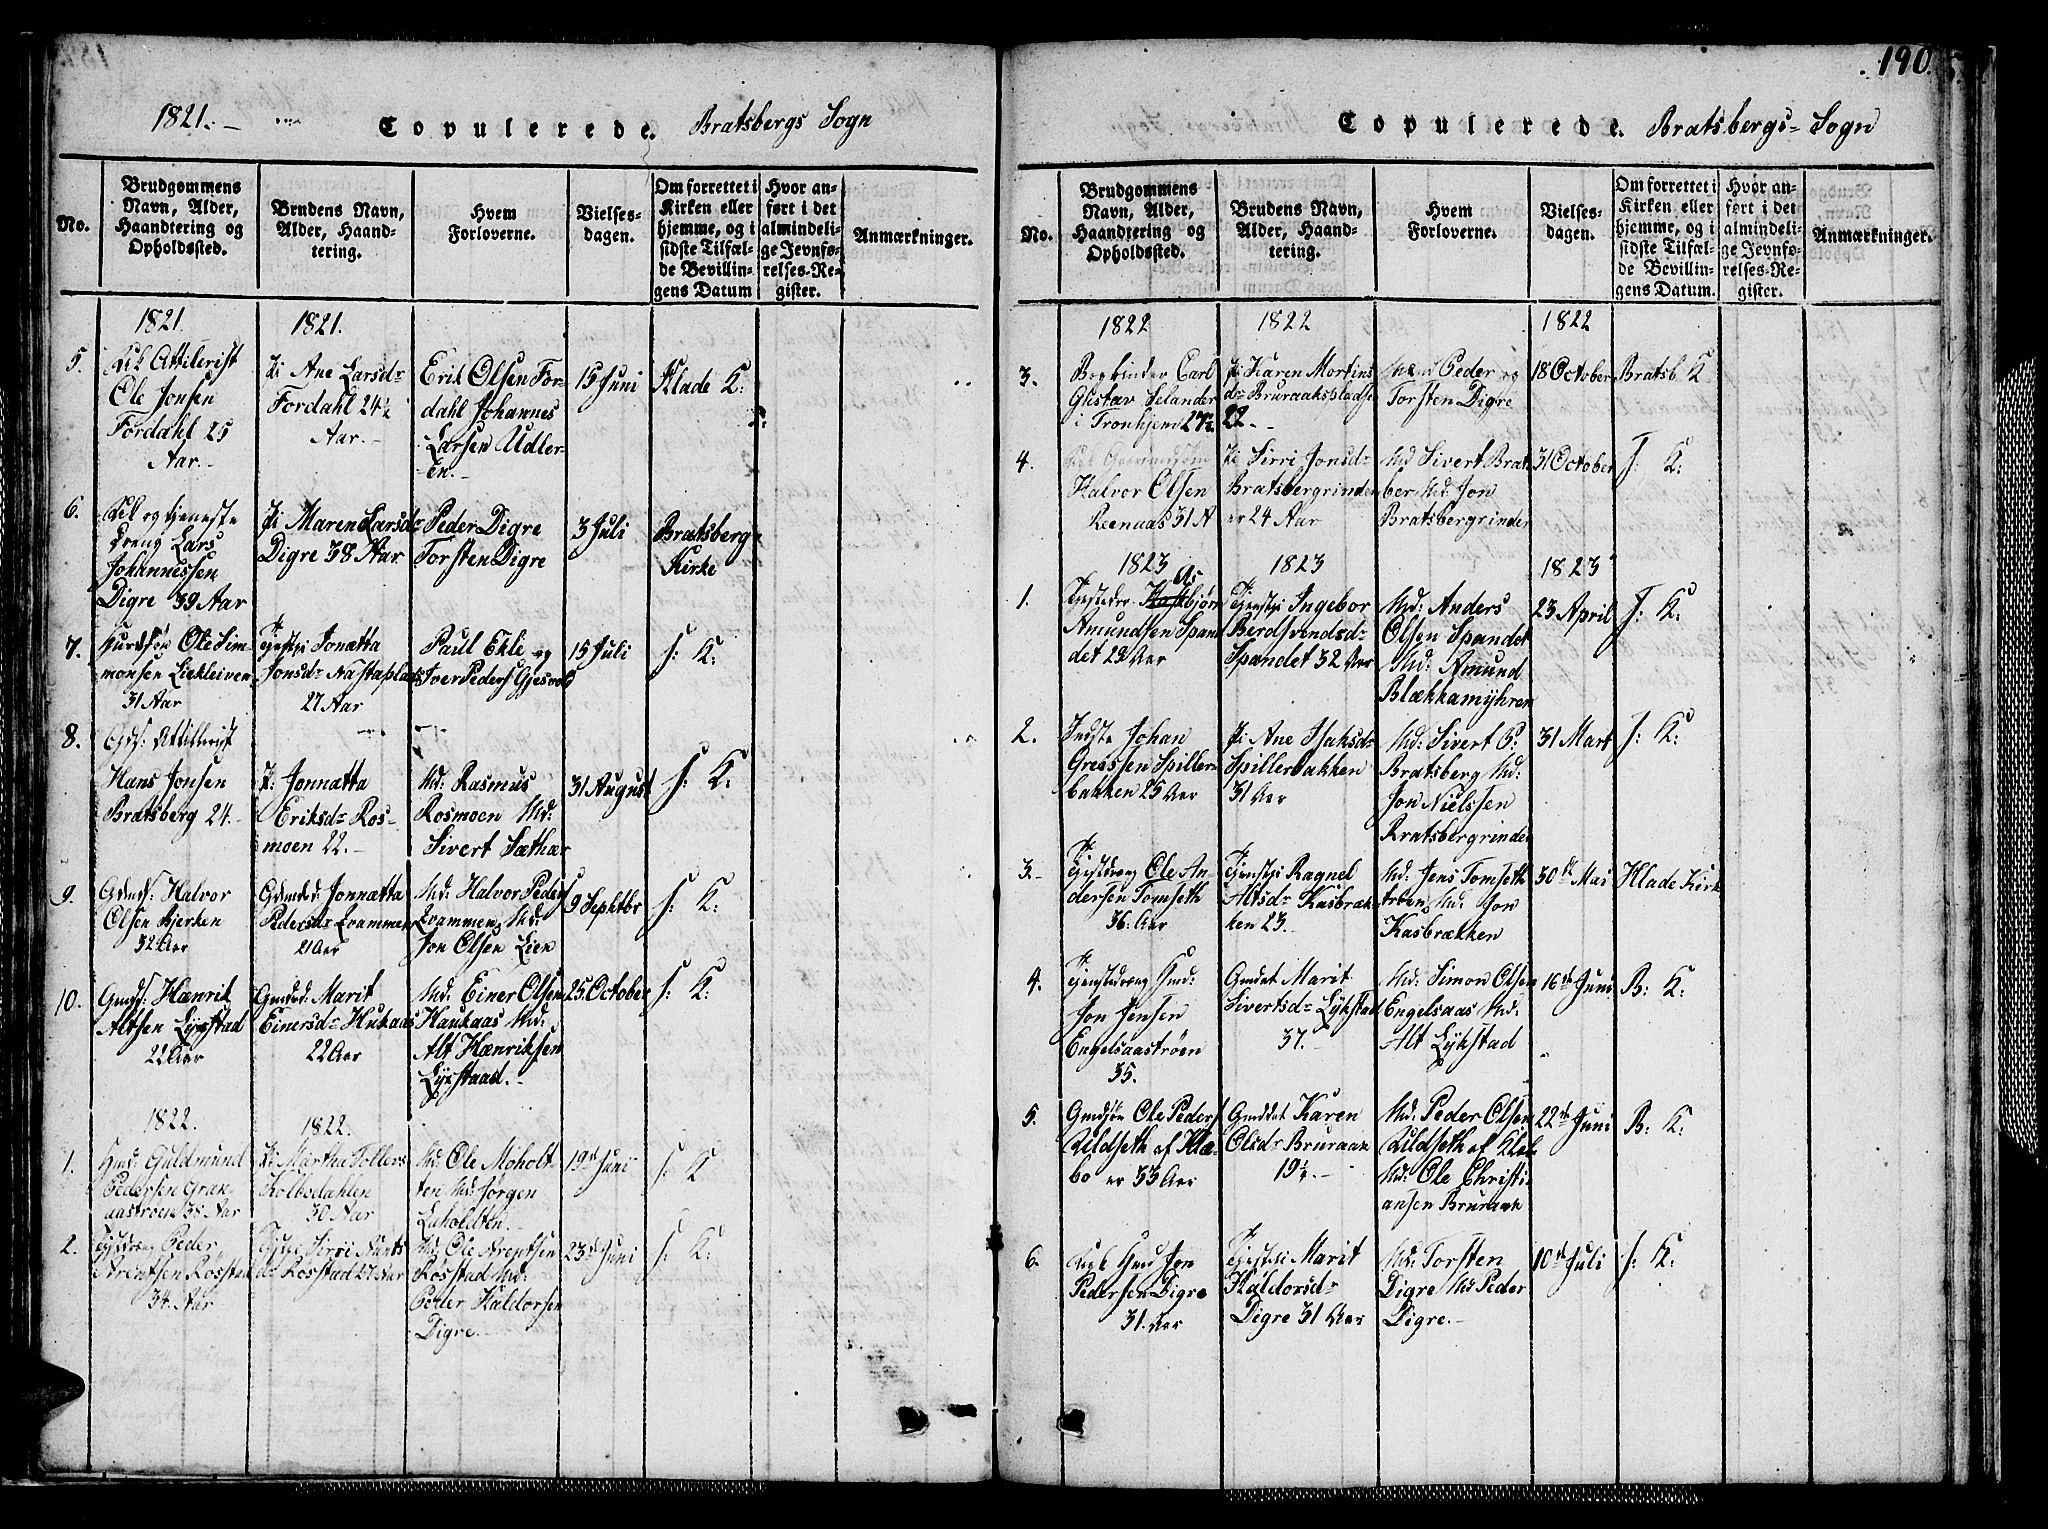 1821.
Copulerede. Bratsbergs Sogn
No.
Brudgommens
Navn, Alder,
Haandtering og
Opholdssted.
Brudens Navn,
Alder, Haand-
tering.
Hvem
Forloverne.
Vielses-
dagen.
Om forrettet i
Kirken eller
hjemme, og i
sidste Tilfæl-
de Bevillin-
gens Datum
Hvor an-
ført i det
almindeli-
ge Jevnfø-
relses-Re-
gister.
Anmærkninger.
1821.
1821.
5.
Attilerist
Ole Jonsen
Fordahl 25
Aar.
Pi Ane Larsdr
Fordahl 24½
Aar.
Erik Olsen For-
dahl Johannes
Larsen Udler-
En.
15 Juni
Hlade K:
6.
og tjeneste
dreng Lars
Johannessen
Digre 39 Aar
Pi Maren Larsdr
Digre 38 Aar
Peder Digre
Torsten Digre
3 Juli
Bratsberg
Kirke
7.
Ole Sim-
monsen Liekleiven
31 Aar
Tjenstpi Jonætta
Jonsdr
27 Aar
Paul Ekle og
Iver Peders Gjesvold
15 Juli
J: K:
8.
Attillerist
Hans Jonsen
Bratsberg 24.
Pi: Jonnatta
Eriksdr Ros-
moen 22.
Md: Rasmus
Rosmoen Md:
Sivert Sæther
31 August
J: K:
9.
Gdmds: Halvor
Olsen Bjerken
32 Aar
Gdmdd: Jonnætta
Pedersdr Qvammen
21 Aar
Md: Halvor Peders
Qvammen Md:
Jon Olsen Lien
9 Sephtbr
J: K:
10.
Gmds: Hænrik
Altsen Lykstad
22 Aar
Gmdd: Marit
Einersdr Hukaas
22 Aar
Md: Einer Olsen
Haukaas Md:
Alt Hænriksen
Lykstaad.
25. October
J: K:
1822.
1822.
1.
Guldmund
Pedersen Gran-
aastrøen 38 Aar
Pi Martha Tollers
Kolbsdahlen
30 Aar
Md: Ole Moholt-
ten Md: Jørgen
Luholdten.
19de Juni
J: K
2.
Peder
Arentsen Rosstad
34. Aar
Sirri
Rosstad 27 Aar
Md: Ole Arentsen
Rosstad Md:
Peder Haldorsen
Digre.
23de Juni
J: K:
190.
Copulerede. Bratsbergs-Sogn
No.
Brudgommens
Navn, Alder,
Haandtering og
Opholdssted.
Brudens Navn,
Alder, Haand-
tering.
Hvem
Forloverne.
Vielses-
dagen.
Om forrettet i
Kirken eller
hjemme, og i
sidste Tilfæl-
de Bevillin-
gens Datum.
Hvor an-
ført i det
almindeli-
ge Jevnfø-
relses-Re-
gister.
Anmærkninger.
1822
1822
1822
3.
Bogbinder Carl
Gustav Selander
i Tronhjem 27½
Pi Karen Mortins
dr Bruraakspladsen
22.
Md Peder og
Torsten Digre
18 October
Bratsb K
4.
Halvor Olsen
Reenaas 31 A
Pi Sirri Jonsdr
Bratsbergrinden
er 24 Aar
Md Sivert Brats
ber Md: Jon
Bratsbergrinden
31 October
J: K:
1823
1823
1823
1.
Asbjørn
Amundsen Span
det 29 Aar
Tjenstpi Ingebor
Berdsvendsdr
Spandet 32 Aar
Md: Anders
Olsen Spandet
Md: Amund
Blækkamyhren
23 April
J: K:
2.
Indste Johan
Greessen Spiller-
bakken 25 Aar
Pi Ane Isaksdr
Spillerbakken
31 Aar
Md: Sivert P:
Bratsberg Md:
Jon Nielssen
Bratsbergrinden
31 Mart
J: K:
3.
Tjenstdreng Ole An-
dersen Tomseth
36. Aar
Tjenstpi Ragnel
Altsdr Kasbræk-
ken 23.
Md: Jens Tomseth
trøen Md: Jon
Kasbrækken
30te Mai
Hlade Kirk
4.
Tjenstdreng
Jon Jensen
Engelsaastrøen
35.
Gmdat Marit
Sivertsdr Lykstad
37.
Md: Simon Olsen
Engelsaas Md:
Alt Lykstad
16de Juni
B: K:
5.
Gmdsøn Ole Peders
Uldseth af Klæ-
bo er 33 Aar
Gmddat Karen
Olsdr Bruraak
19½.
Md: Peder Olsen
Uldseth af Kleb
Md: Ole Christi
ansen Bruraak
22de Juni
B: K:
6.
Jon
Pedersen Digre
31. Aar
Tjenstpi Marit
Haldorsdr
Digre 31 Aar
Md: Torsten
Digre Md Peder
Digre.
10de Juli
J: K: